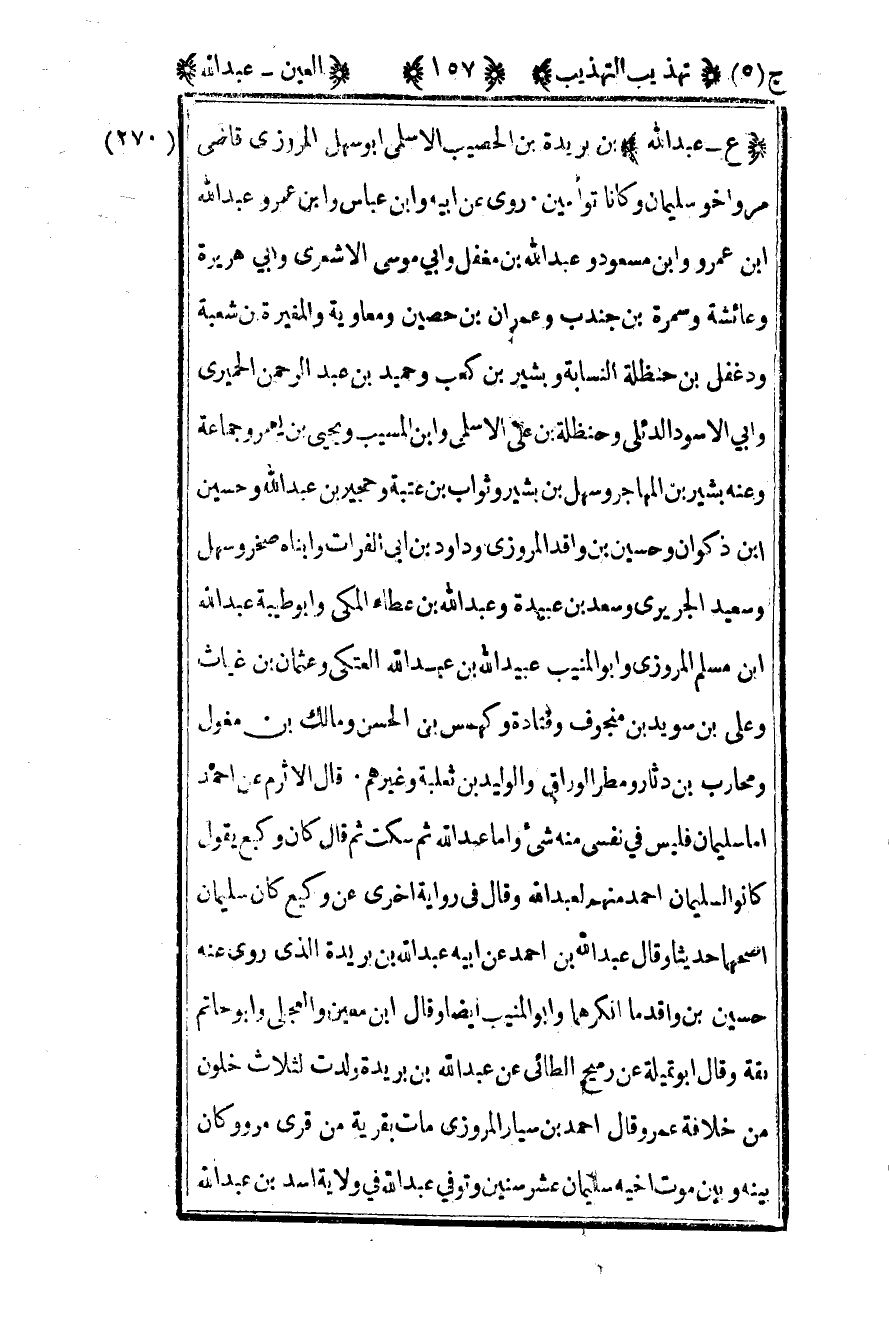 ج (٥) ﴿ تهذيب التهذيب ﴾ ﴿ ١٥٧ ﴾ ﴿ العين - عبدالله ﴾
﴿ ع - عبدالله ﴾ بن بريدة بن الحصيب الاسلمى ابوسهل المروزى قاضى (٢٧٠)
مرو اخو سليمان وكانا توأمين . روى عن ابيه وابن عباس وابن عمرو عبدالله
ابن عمرو وابن مسعود و عبدالله بن مغفل وابي موسى الاشعرى وابي هريرة
وعائشة وسمرة بن جندب وعمران بن حصين ومعاوية والمغيرة بن شعبة
ودغفل بن حنظلة النسابة و بشير بن كعب وحميد بن عبد الرحمن الحميرى
وابي الاسود الدئلى وحنظلة بن على الاسلمى وابن المسيب ويحيى بن يعمر وجماعة
وعنه بشير بن المهاجر وسهل بن بشير وثواب بن عتبة وحجير بن عبدالله وحسين
ابن ذكوان وحسين بن واقد المروزى وداود بن ابى الفرات وابناه صخر وسهل
وسعيد الجريرى وسعد بن عبيدة وعبدالله بن عطاء المكى وابوطيبة عبدالله
ابن مسلم المروزى وابوالمنيب عبيدالله بن عبدالله العتكى وعثمان بن غياث
وعلى بن سويد بن منجوف وقتادة وكهمس بن الحسن ومالك بن مغول
ومحارب بن دثار ومطر الوراق والوليد بن ثعلبة وغيرهم . قال الاثرم عن احمد
اما سليمان فليس في نفسى منه شئ واما عبدالله ثم سكت ثم قال كان وكيع يقول
كانوا لسليمان احمد منهم لعبدالله وقال فى رواية اخرى عن وكيع كان سليمان
اصحهما حديثا وقال عبدالله بن احمد عن ابيه عبدالله بن بريدة الذى روى عنه
حسين بن واقد ما انكرها وابو المنيب ايضا وقال ابن معين والعجلى وابوحاتم
ثقة وقال ابو تميلة عن رميح الطائى عن عبدالله بن بريدة ولدت لثلاث خلون
من خلافة عمر وقال احمد بن سيار المروزى مات بقرية من قرى مرو وكان
بينه و بين موت اخيه سليمان عشر سنين وتوفي عبدالله في ولاية اسد بن عبدالله